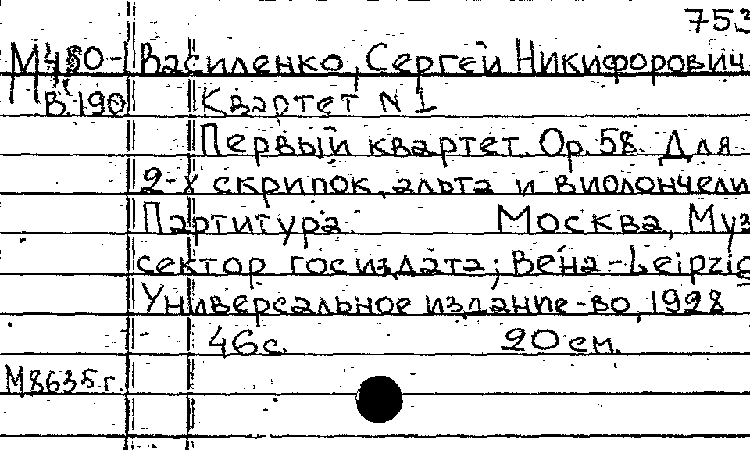 753
М450- Василенко, Сергей Никифорович
В.190 Квартет N 1
Первый квартет. Op. 58. Для
2-х скрипок, альта и виолончели
Партитура. Москва, Муз
сектор госиздата; Вена-Leipzig
Универсальное издание-во, 1928
46с. 20 см.
М8635г.